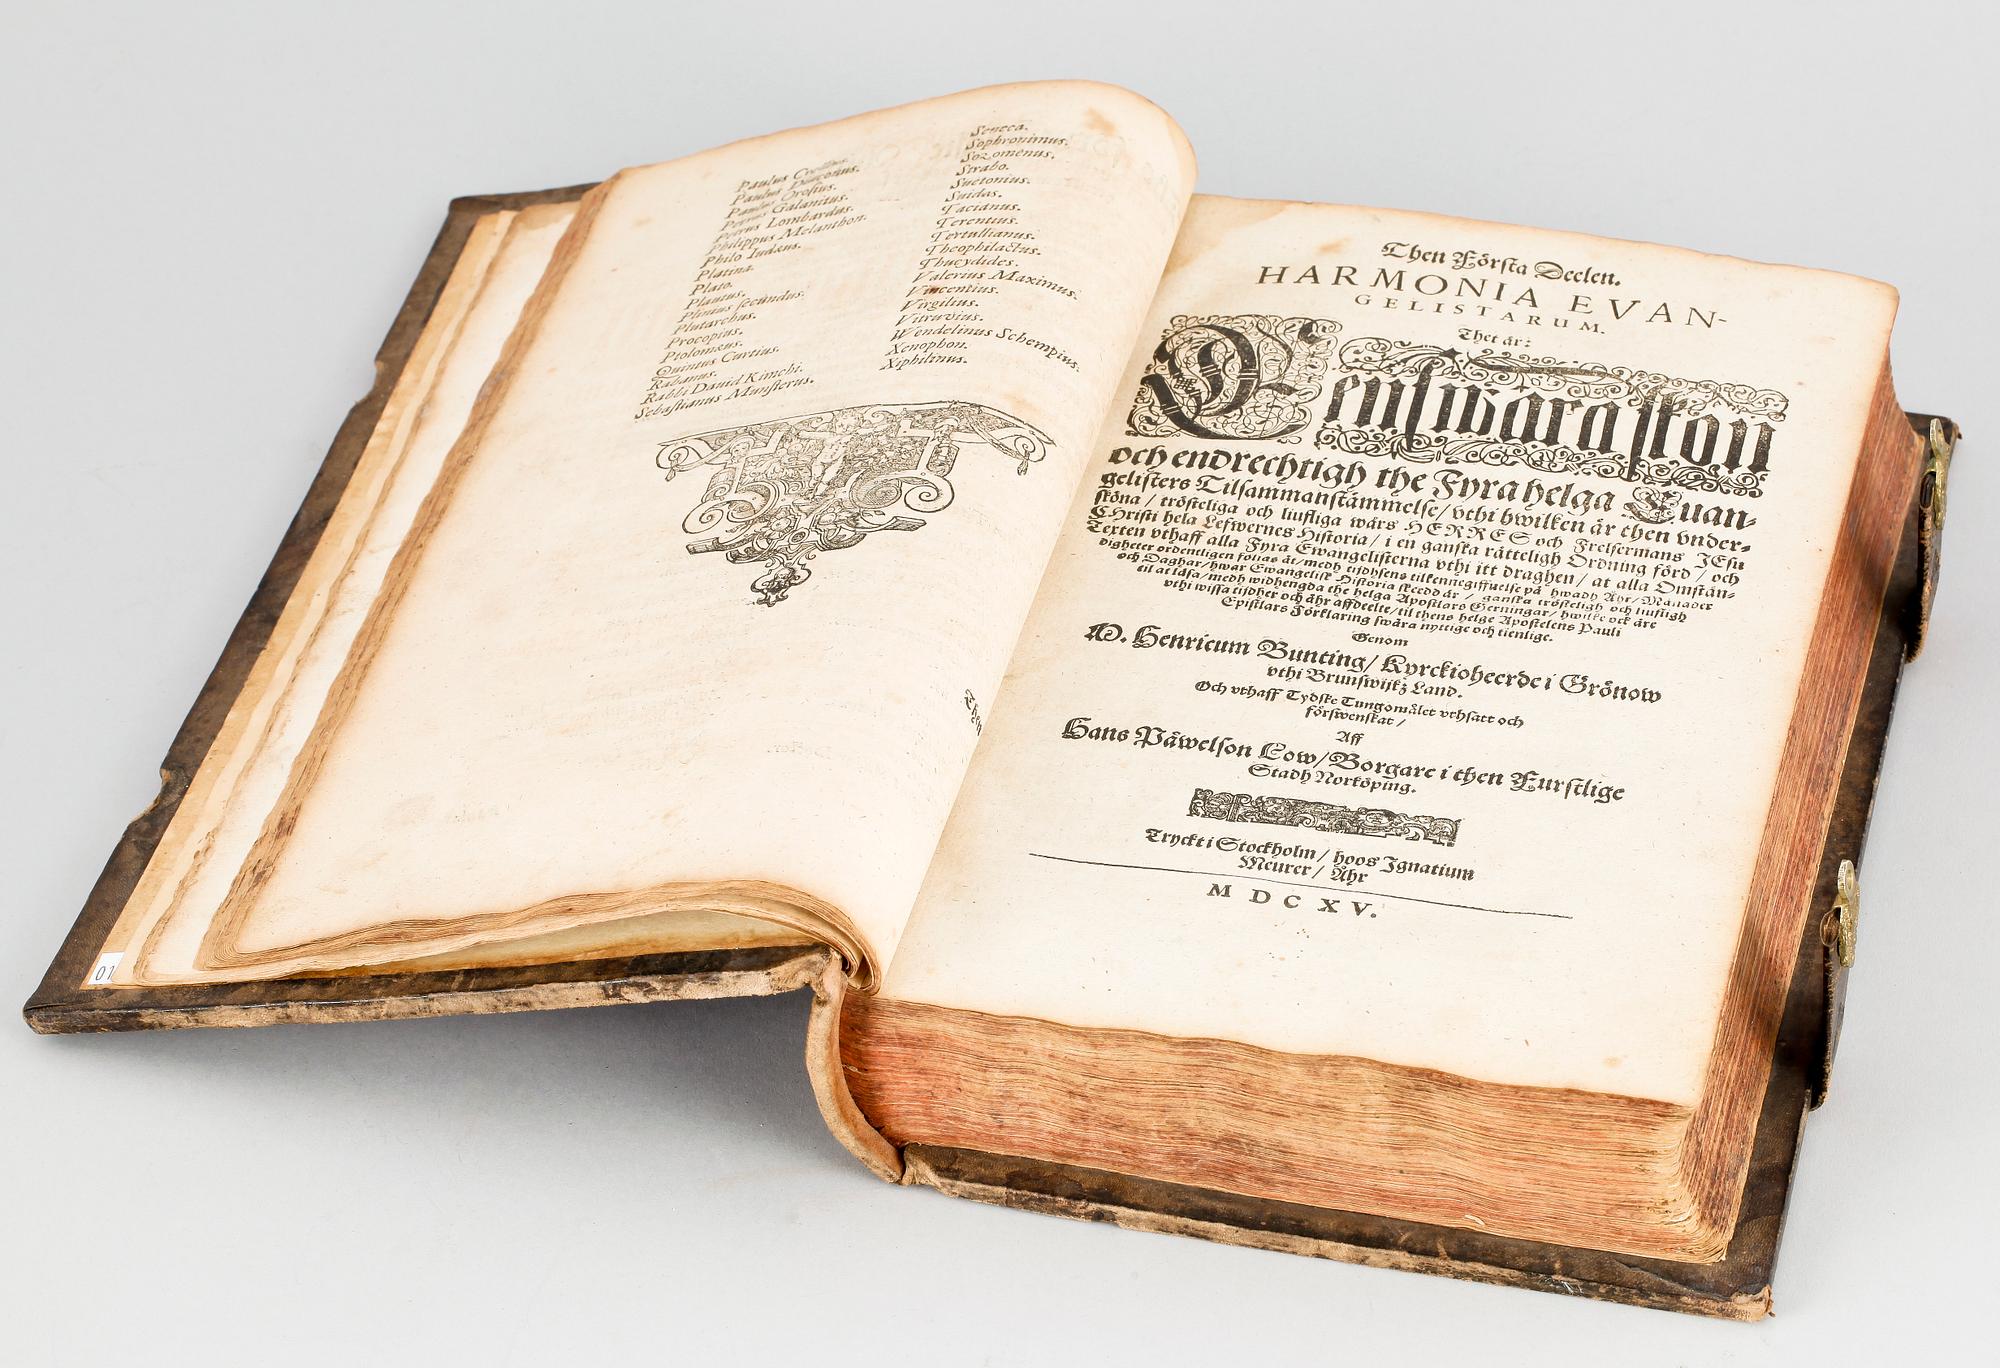 Paulus
Paulus Diaconus.
Paulus Orosius.
Petrus Galanitus.
Petrus Lombardus.
Philippus Melanthon.
Philo Iudæus.
Platina.
Plato.
Plautus.
Plinius secundus.
Plutarchus.
Procopius.
Ptolomæus.
Quintus Curtius.
Rabanus.
Rabbi Dauid Kimchi.
Sebastianus Munsterus.
Seneca.
Sophronimus.
Sozomenus.
Strabo.
Suetonius.
Suidas.
Tacianus.
Terentius.
Tertullianus.
Theophilactus.
Thucydides.
Valerius Maximus.
Vincentius.
Virgilius.
Vitruvius.
Wendelinus Schempius.
Xenophon.
Xiphilinus.
Then
01
Then Första Deelen.
HARMONIA EVAN-
GELISTARUM.
Thet är:
Den swåra skön
och endrechtigh the Fyra helga Euan-
gelisters Tilsammanstämmelse/ vthi hwilken är then vnder-
sköna / trösteliga och liufliga wårs HERRES och Frelsermans JEsu
CHristi hela Lefwernes Historia / i en ganska rätteligh Ordning förd / och
Texten vthaff alla Fyra Ewangelisterna vthi itt draghen / at alla Omstän-
digheter ordentligen följas åt/ medh tijdhsens tilkennegiffuelse på hwadh Åhr/ Månader
och Daghar/ hwar Ewangelisk Historia skedd är / ganska trösteligh och liufligh
til at läsa/ medh widhengda the helga Apostlars Gerningar/ hwilke ock äre
vthi wissa tijdher och åhr affdeelte/ til thens helge Apostelens Pauli
Epistlars Förklaring swåra nyttige och tienlige.
Genom
M. Henricum Bunting/ Kyrckioheerde i Grönow
vthi Brunswijkz Land.
Och vthaff Tydske Tungomålet vthsatt och
förswenskat /
Aff
Hans Påwelson Low/ Borgare i then Furstlige
Stadh Norköping.
Tryckt i Stockholm / hoos Ignatium
Meurer / Åhr
M D C X V.